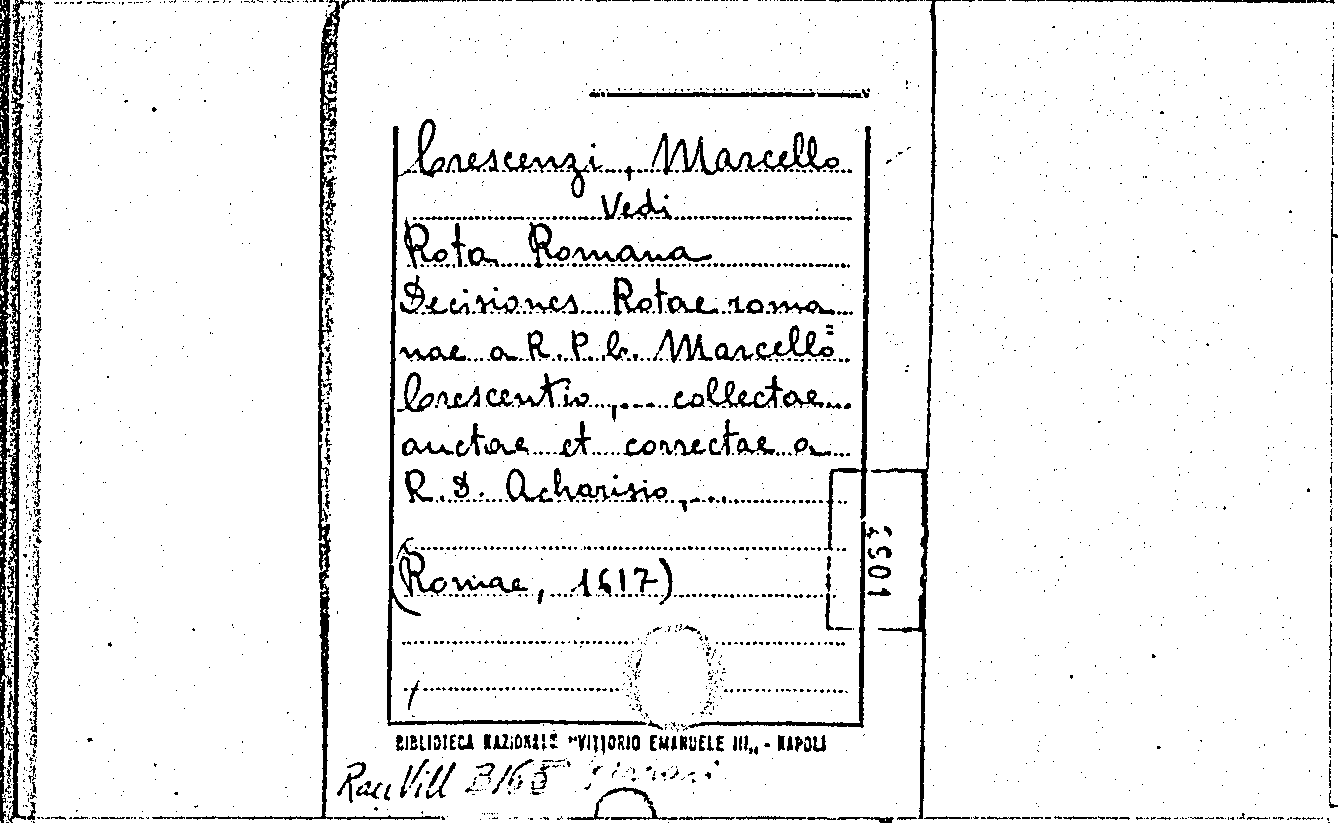 Crescenzi, Marcello
Vedi
Rota Romana
Decisiones Rotae roma
nae a R. P. C. Marcello
Crescentio, ... collectae
auctae et correctae a
R. D. Acharisio, ...
(Romae, 1617)
BIBLIOTECA NAZIONALE "VITTORIO EMANUELE III„ - NAPOLI
Racc Vill B 165